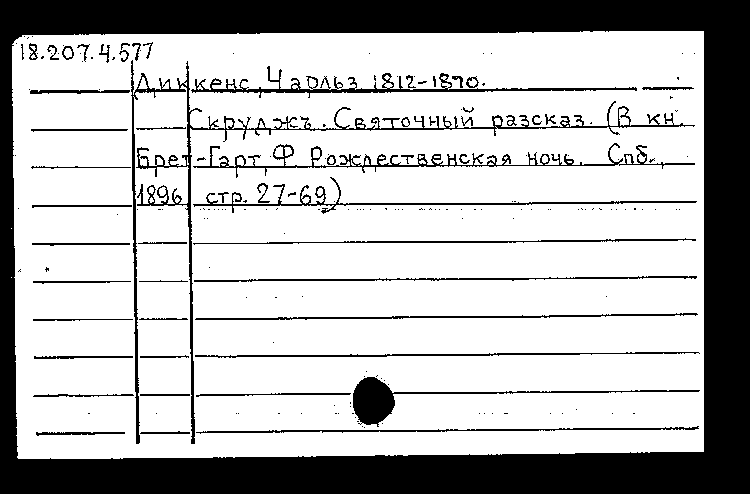 18.207.4.577
Диккенс, Чарльз 1812-1870.
Скруджъ. Святочный разсказ. (В кн.
Брет-Гарт, Ф. Рождественская ночь. Спб.,
1896, стр. 27-69)